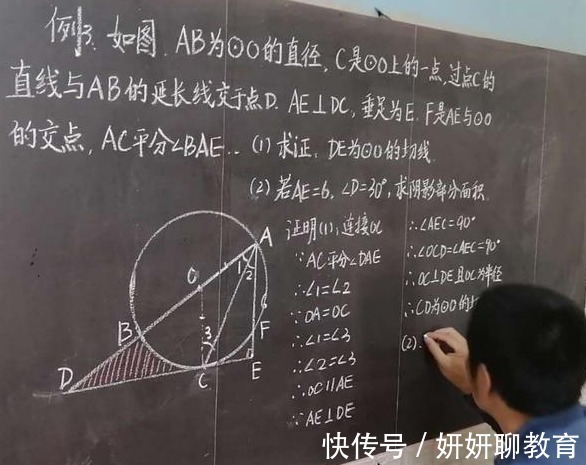 例3. 如图, AB为⊙O的直径, C是⊙O上的一点, 过点C的
直线与AB的延长线交于点D. AE⊥DC, 垂足为E. F是AE与⊙O
的交点, AC平分∠BAE.. (1) 求证: DE为⊙O的切线
(2) 若AE=6, ∠D=30°, 求阴影部分面积.
证明(1), 连接OC
∵AC平分∠DAE
∴∠1=∠2
∵OA=OC
∴∠1=∠3
∴∠2=∠3
∴OC∥AE
∵AE⊥DE
∴∠AEC=90°
∴∠OCD=∠AEC=90°
∴OC⊥DE且OC为半径
∴CD为⊙O的切
(2).
A
1
2
O
6
B
3
F
D
C
E
快传号 / 妍妍聊教育